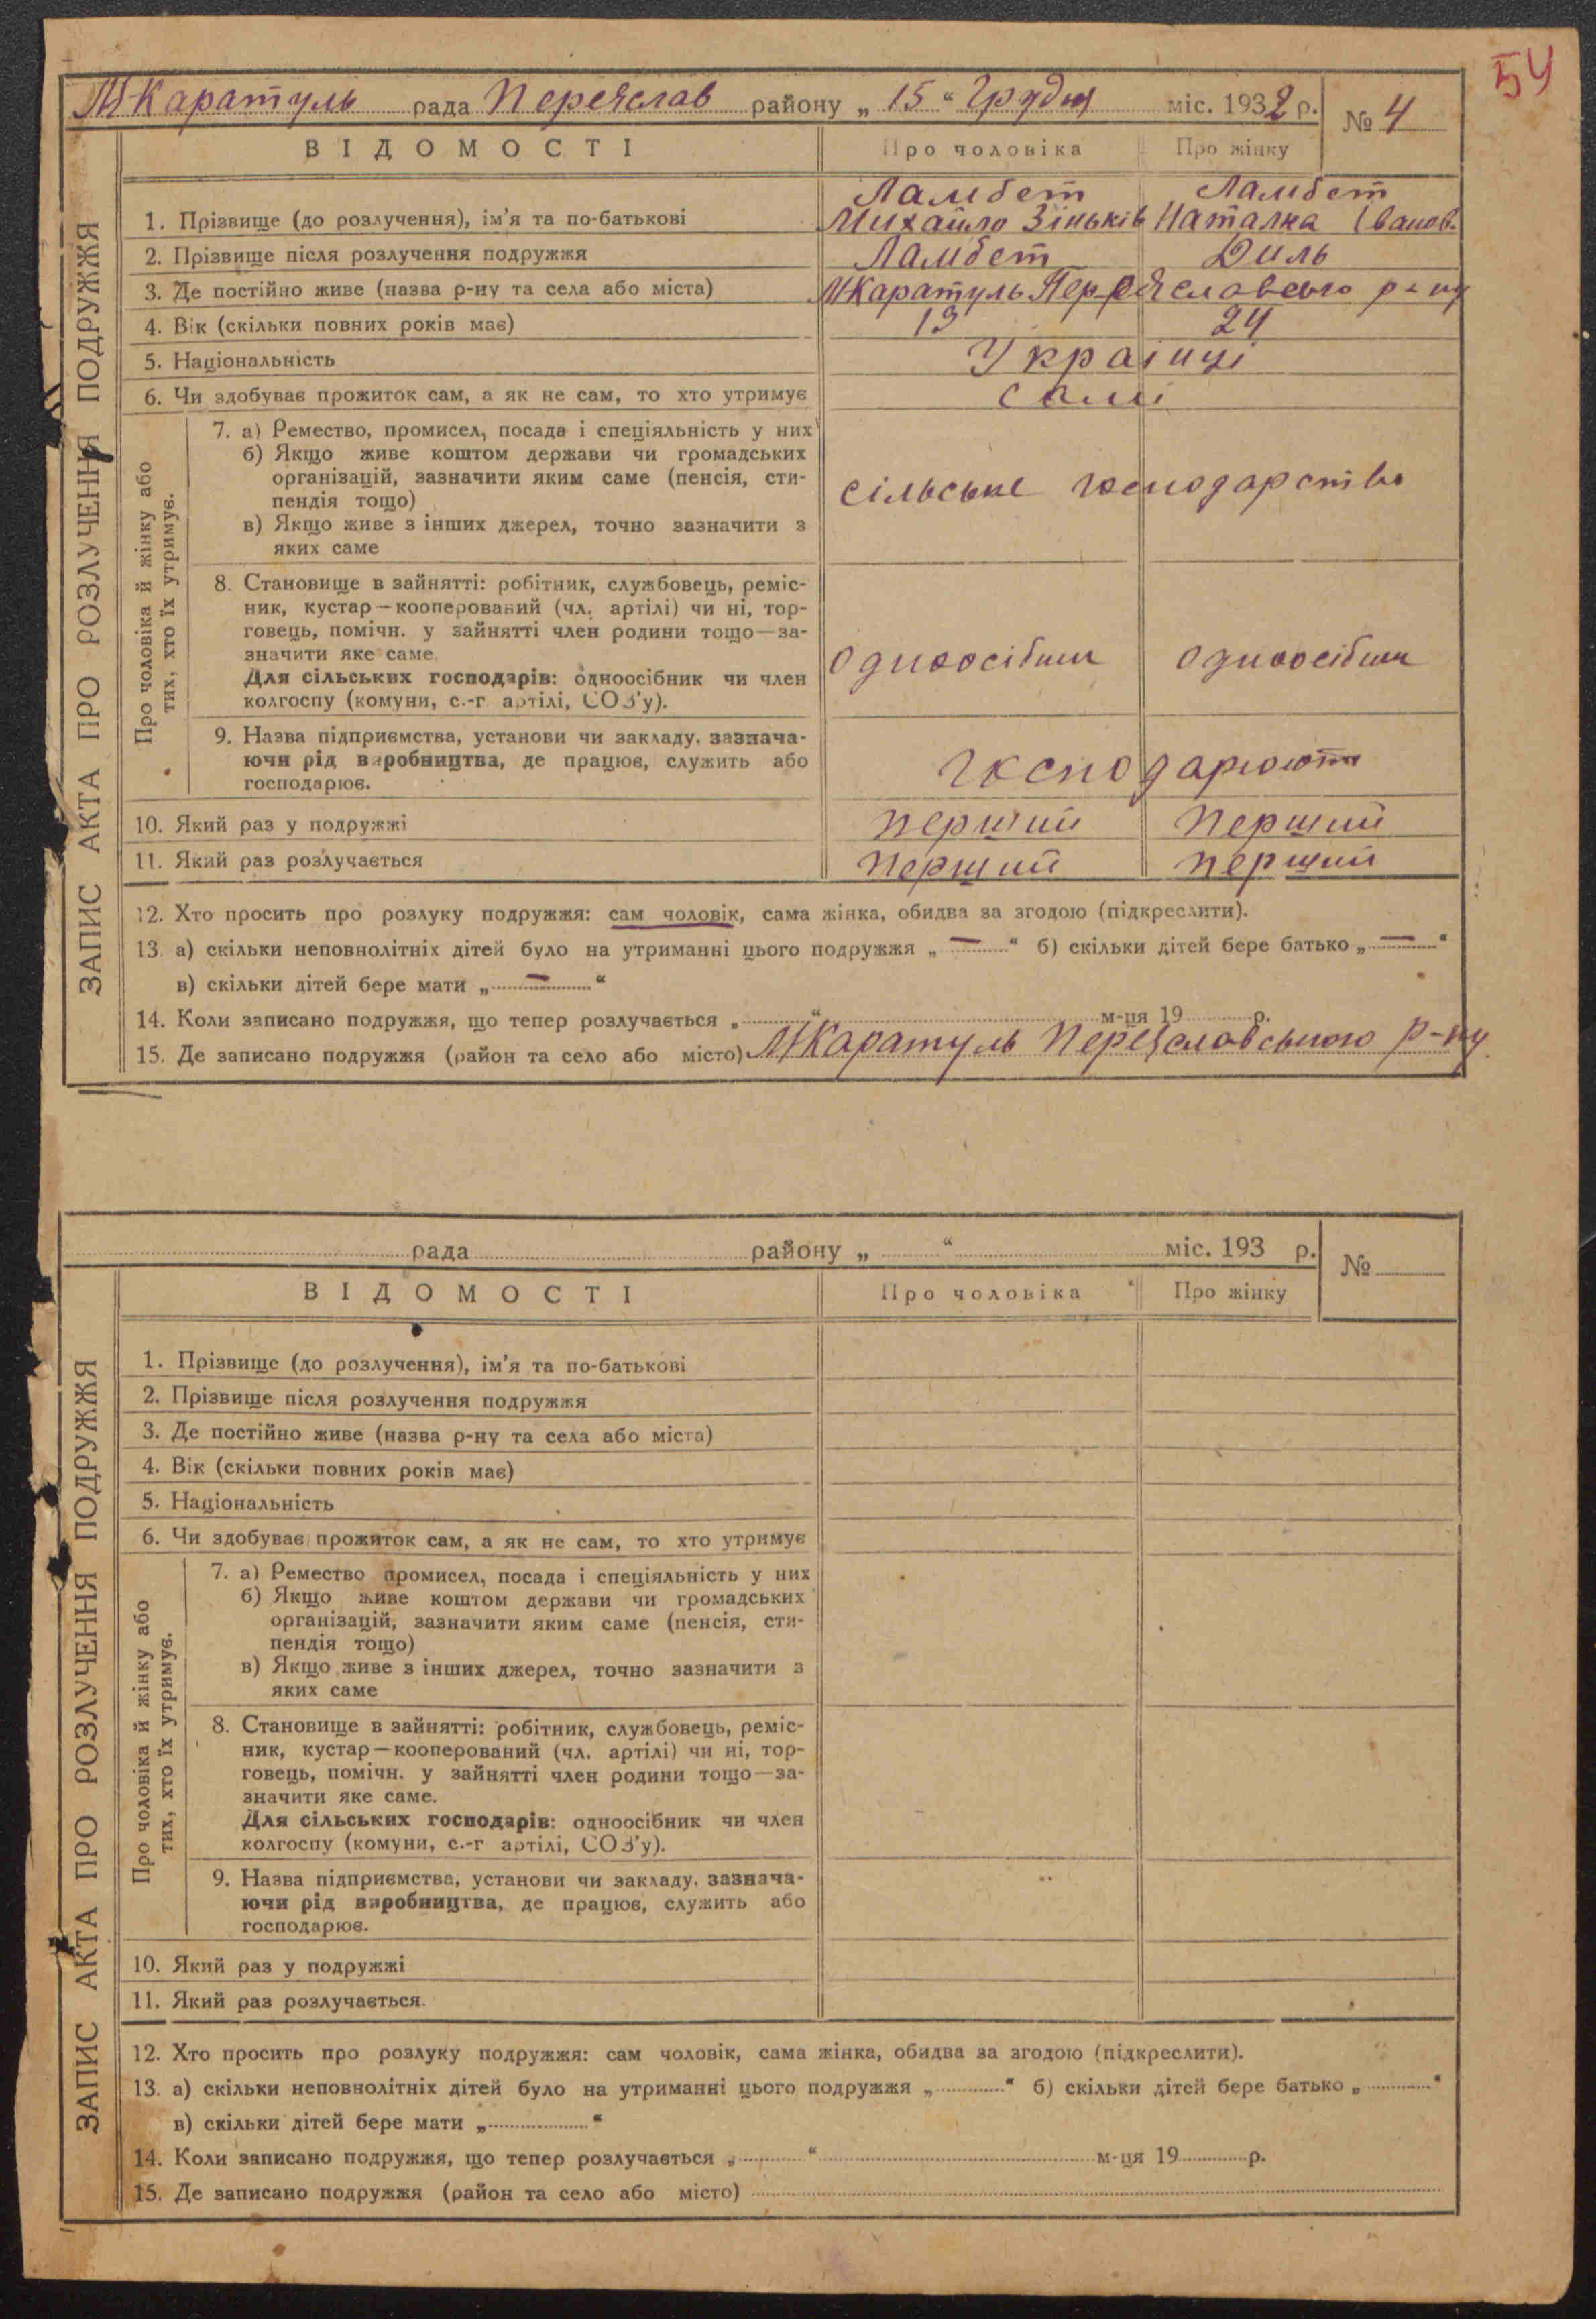 54
МКаратуль рада Переяслав району „ 15 “ Грудня міс. 1932 р.
№ 4
ВІДОМОСТІ Про чоловіка Про жінку
ЗАПИС АКТА ПРО РОЗЛУЧЕННЯ ПОДРУЖЖЯ
Ламбет Ламбет
1. Прізвище (до розлучення), ім'я та по-батькові Михайло Зіньків Наталка Іванов.
2. Прізвище після розлучення подружжя Ламбет Диль
3. Де постійно живе (назва р-ну та села або міста) МКаратуль Переяславсього р-ну
4. Вік (скільки повних років має) 19 24
5. Національність Українці
6. Чи здобуває прожиток сам, а як не сам, то хто утримує самі
Про чоловіка й жінку або
тих, хто їх утримує.
7. а) Ремество, промисел, посада і спеціяльність у них
б) Якщо живе коштом держави чи громадських
організацій, зазначити яким саме (пенсія, сти-
пендія тощо)
сільське господарство
в) Якщо живе з інших джерел, точно зазначити з
яких саме
8. Становище в зайнятті: робітник, службовець, реміс-
ник, кустар—кооперований (чл. артілі) чи ні, тор-
говець, помічн. у зайнятті член родини тощо—за-
значити яке саме.
Для сільських господарів: одноосібник чи член
колгоспу (комуни, с.-г. артілі, СОЗ'у).
9. Назва підприємства, установи чи закладу, зазнача-
ючи рід виробництва, де працює, служить або
господарює.
господарюють
10. Який раз у подружжі перший перший
11. Який раз розлучається перший перший
12. Хто просить про розлуку подружжя: сам чоловік, сама жінка, обидва за згодою (підкреслити).
13. а) скільки неповнолітніх дітей було на утриманні цього подружжя „ — “ б) скільки дітей бере батько „ — “
в) скільки дітей бере мати „ — “
14. Коли записано подружжя, що тепер розлучається „ “ м-ця 19 р.
15. Де записано подружжя (район та село або місто) МКаратуль Переяславського р-ну
рада району „ “ міс. 193 р.
№
ВІДОМОСТІ Про чоловіка Про жінку
ЗАПИС АКТА ПРО РОЗЛУЧЕННЯ ПОДРУЖЖЯ
1. Прізвище (до розлучення), ім'я та по-батькові
2. Прізвище після розлучення подружжя
3. Де постійно живе (назва р-ну та села або міста)
4. Вік (скільки повних років має)
5. Національність
6. Чи здобуває прожиток сам, а як не сам, то хто утримує
Про чоловіка й жінку або
тих, хто їх утримує.
7. а) Ремество промисел, посада і спеціяльність у них
б) Якщо живе коштом держави чи громадських
організацій, зазначити яким саме (пенсія, сти-
пендія тощо)
в) Якщо живе з інших джерел, точно зазначити з
яких саме
8. Становище в зайнятті: робітник, службовець, реміс-
ник, кустар—кооперований (чл. артілі) чи ні, тор-
говець, помічн. у зайнятті член родини тощо—за-
значити яке саме.
Для сільських господарів: одноосібник чи член
колгоспу (комуни, с.-г артілі, СОЗ'у).
9. Назва підприємства, установи чи закладу, зазнача-
ючи рід виробництва, де працює, служить або
господарює.
10. Який раз у подружжі
11. Який раз розлучається.
12. Хто просить про розлуку подружжя: сам чоловік, сама жінка, обидва за згодою (підкреслити).
13. а) скільки неповнолітніх дітей було на утриманні цього подружжя „ “ б) скільки дітей бере батько „ “
в) скільки дітей бере мати „ “
14. Коли записано подружжя, що тепер розлучається „ “ м-ця 19 р.
15. Де записано подружжя (район та село або місто)